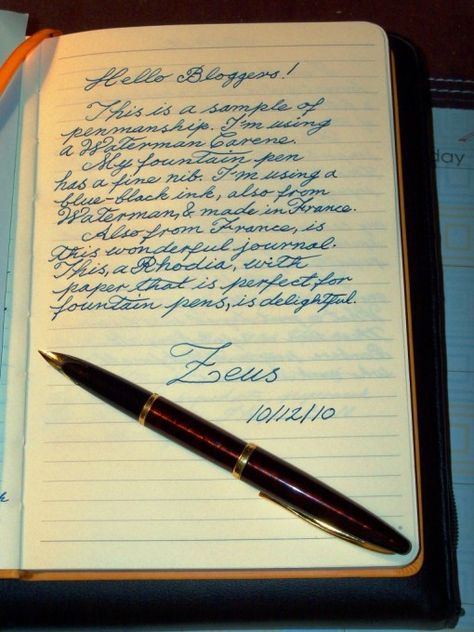 Hello Bloggers!
This is a sample of
penmanship. I'm using
a Waterman Carene.
My fountain pen
has a fine nib. I'm using a
blue-black ink, also from
Waterman, & made in France.
Also from France, is
this wonderful journal.
This, a Rhodia, with
paper that is perfect for
fountain pens, is delightful.
Zeus
10/12/10
day